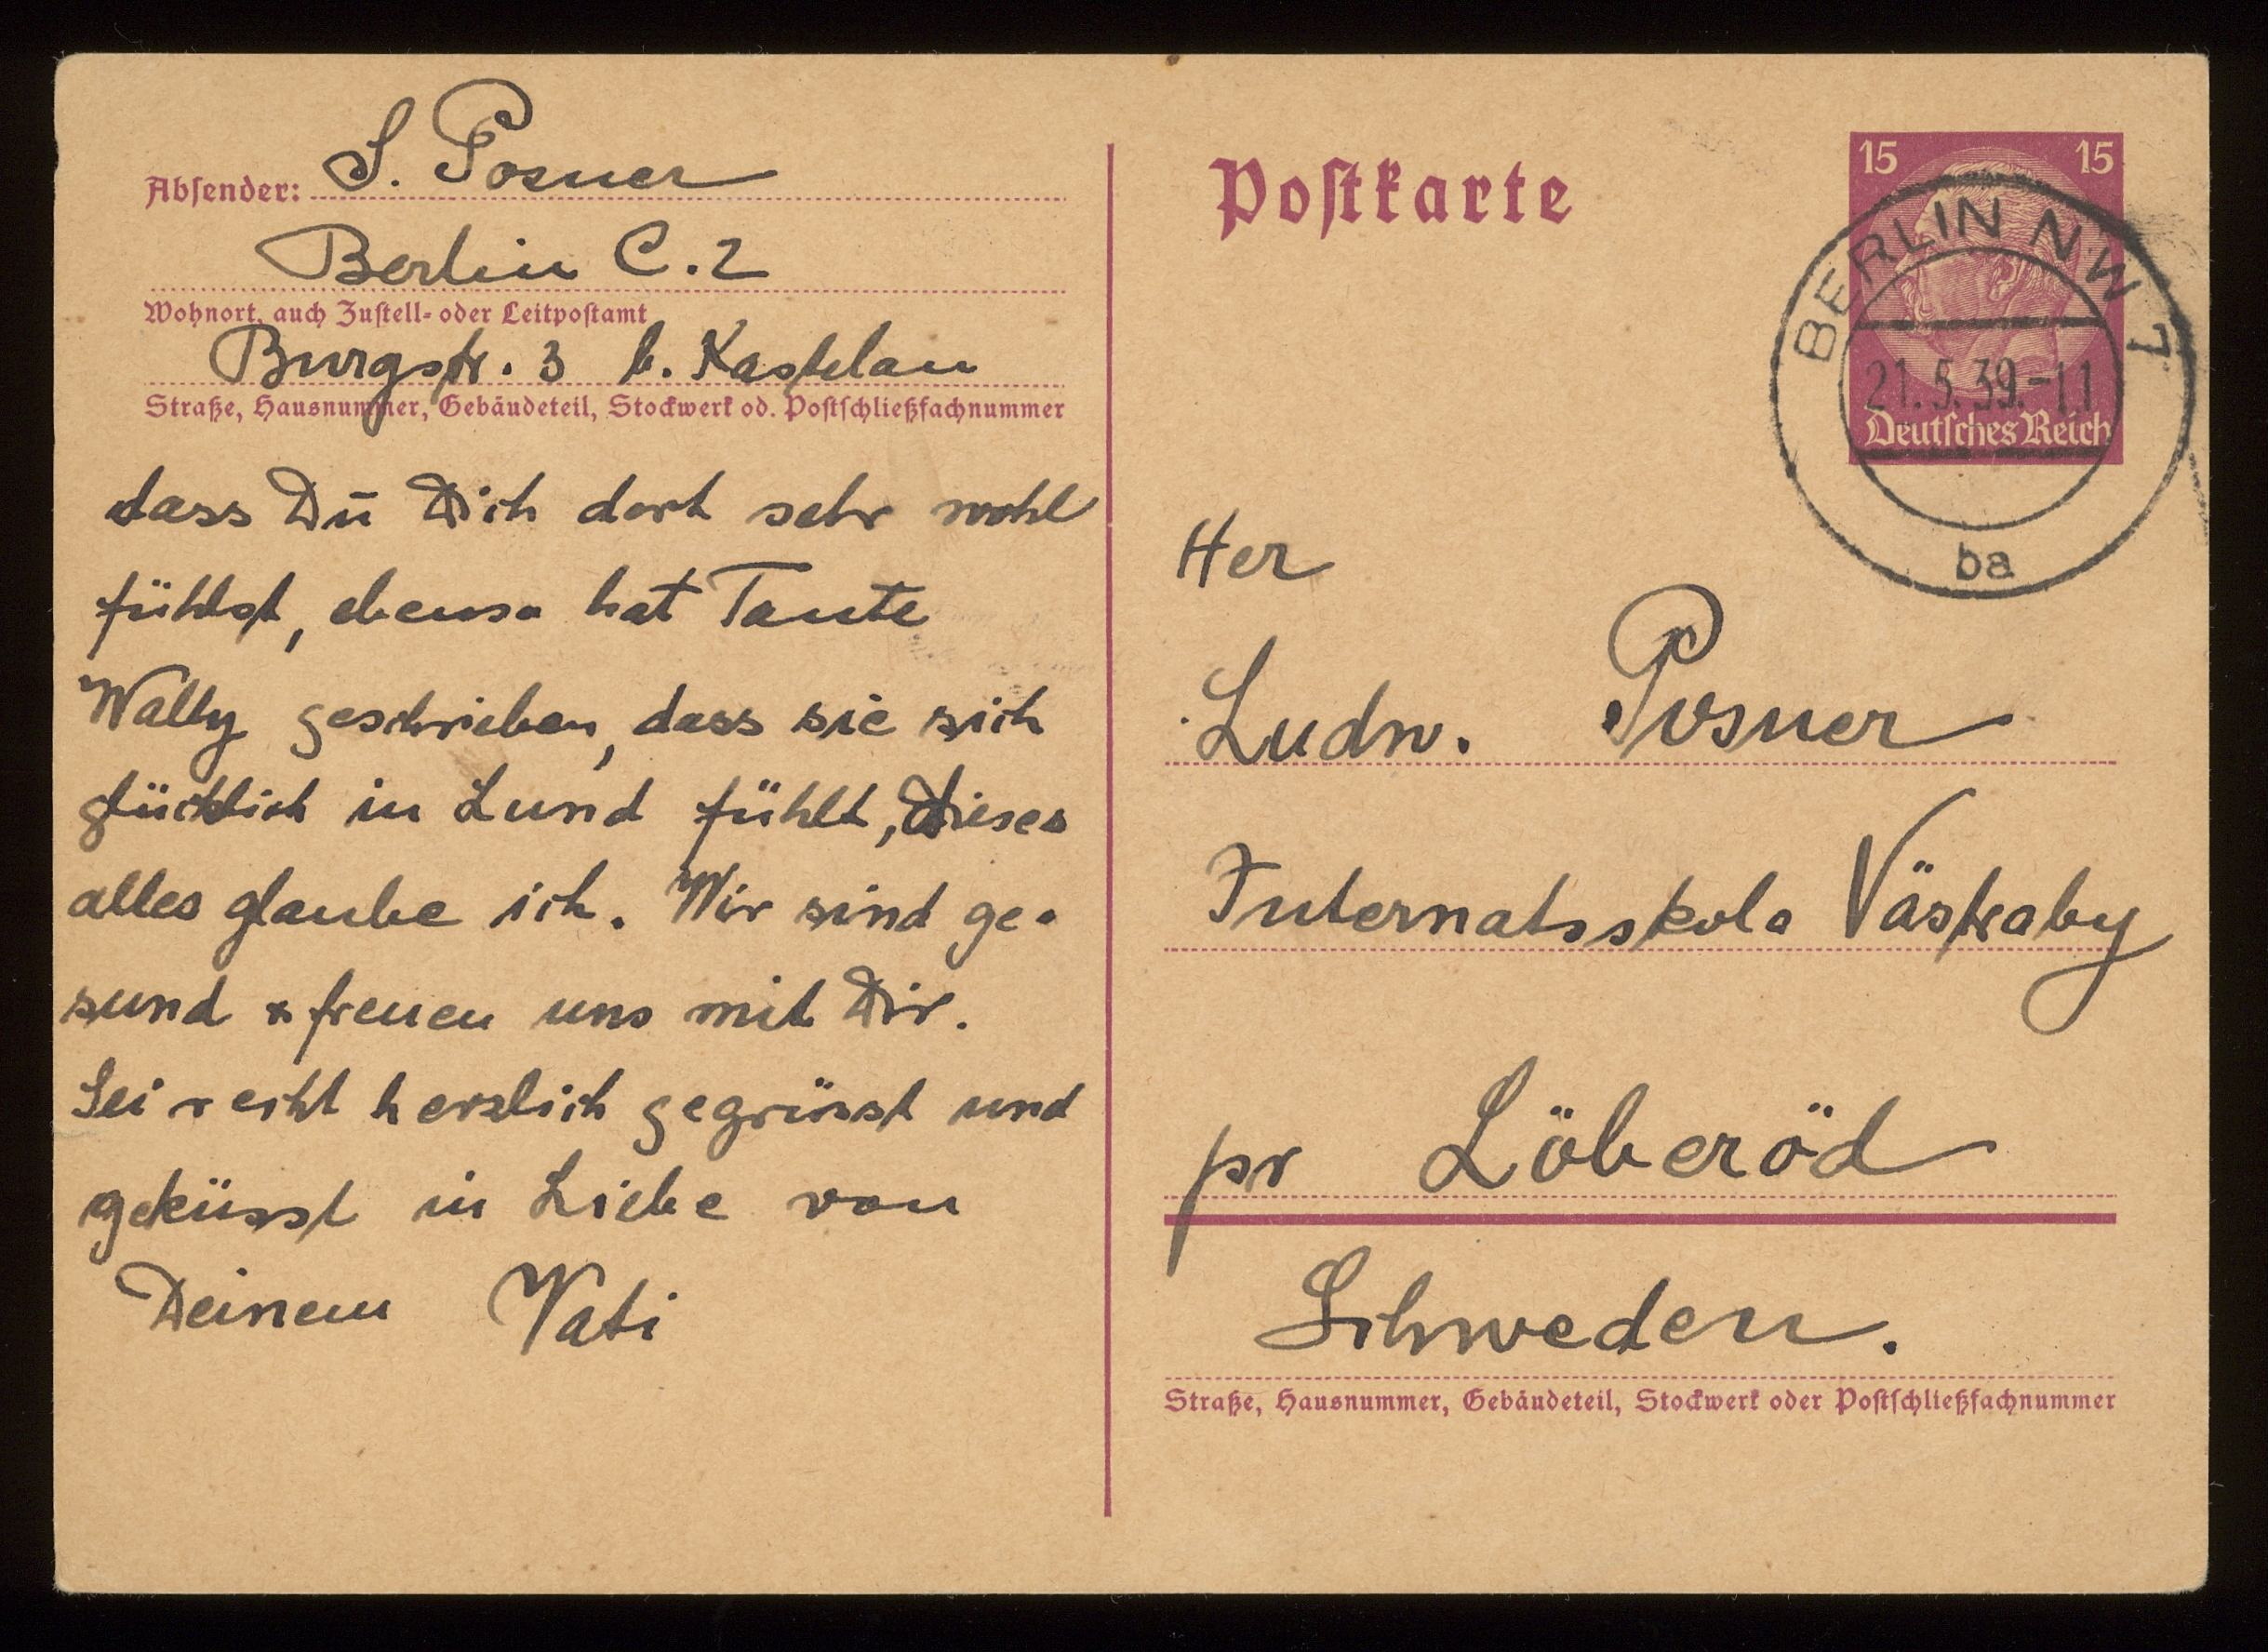 Absender: S. Posner
Berlin C.2
Wohnort, auch Zustell- oder Leitpostamt
Burgstr. 3 b. Kastelan
Straße, Hausnummer, Gebäudeteil, Stockwerk od. Postschließfachnummer
dass Dū Dich dort sehr wohl
fühlst, ebenso hat Tante
Wally geschrieben, dass sie sich
glücklich in Lund fühlt, dieses
alles glaube ich. Wir sind ge-
sund & freuen uns mit Dir.
Sei recht herzlich gegrüsst und
geküsst in Liebe von
Deinem Vati
Postkarte
15 15
Deutsches Reich
BERLIN NW 7
21.5.39.-11
ba
Her
Ludw. Posner
Internatsskola Västraby
pr Löberöd
Schweden.
Straße, Hausnummer, Gebäudeteil, Stockwerk oder Postschließfachnummer